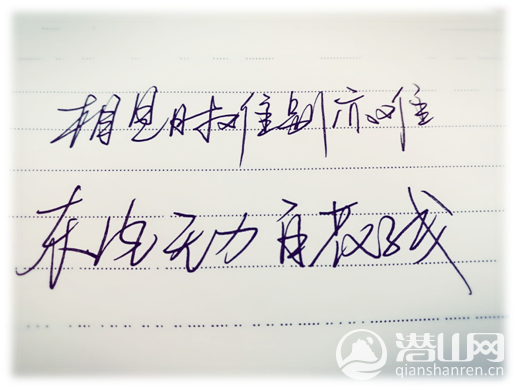 相见时难别亦难
东风无力百花残
潜山网
qianshanren.cn